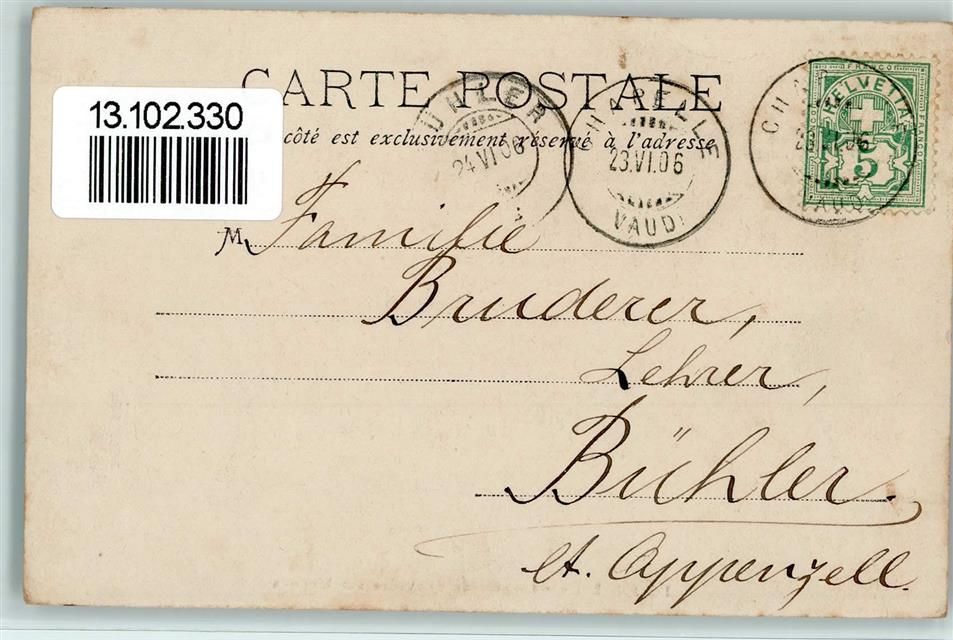 CARTE POSTALE
13.102.330
côté est exclusivement réservé à l'adresse
BÜHLER
24 VI 06
CHAPELLE
23.VI.06
VAUD
FRANCO
HELVETIA
5
M. Familie
Bruderer,
Lehrer,
Bühler.
Ct. Appenzell.